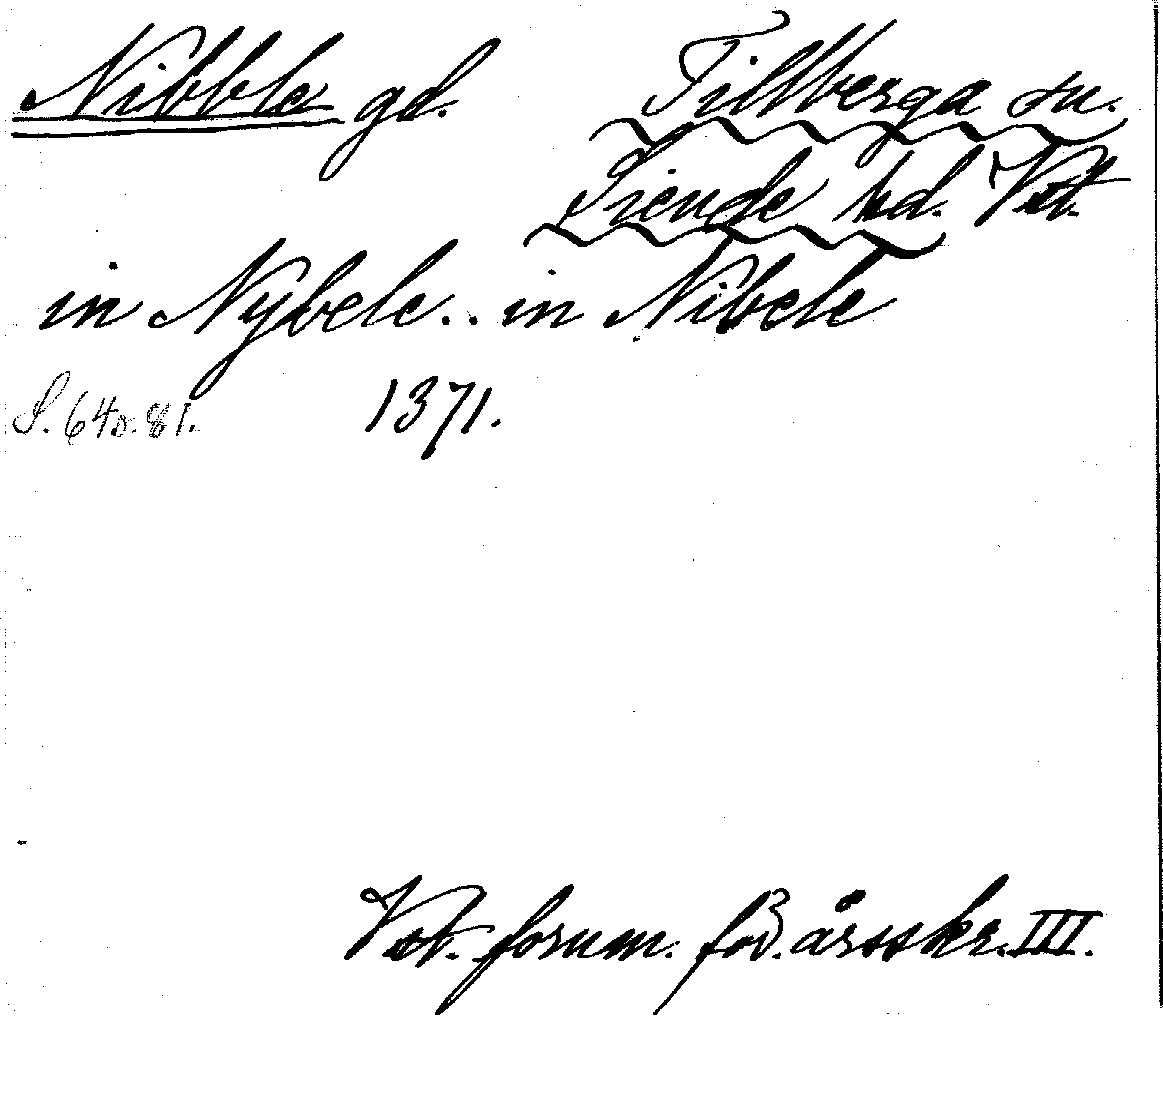 Nibble gd. Tillberga sn.
Siende hd. Vstm.
in Nybele.. in Nibele
S. 64 o. 81. 1371.
Vst. fornm. för. årsskr. III.